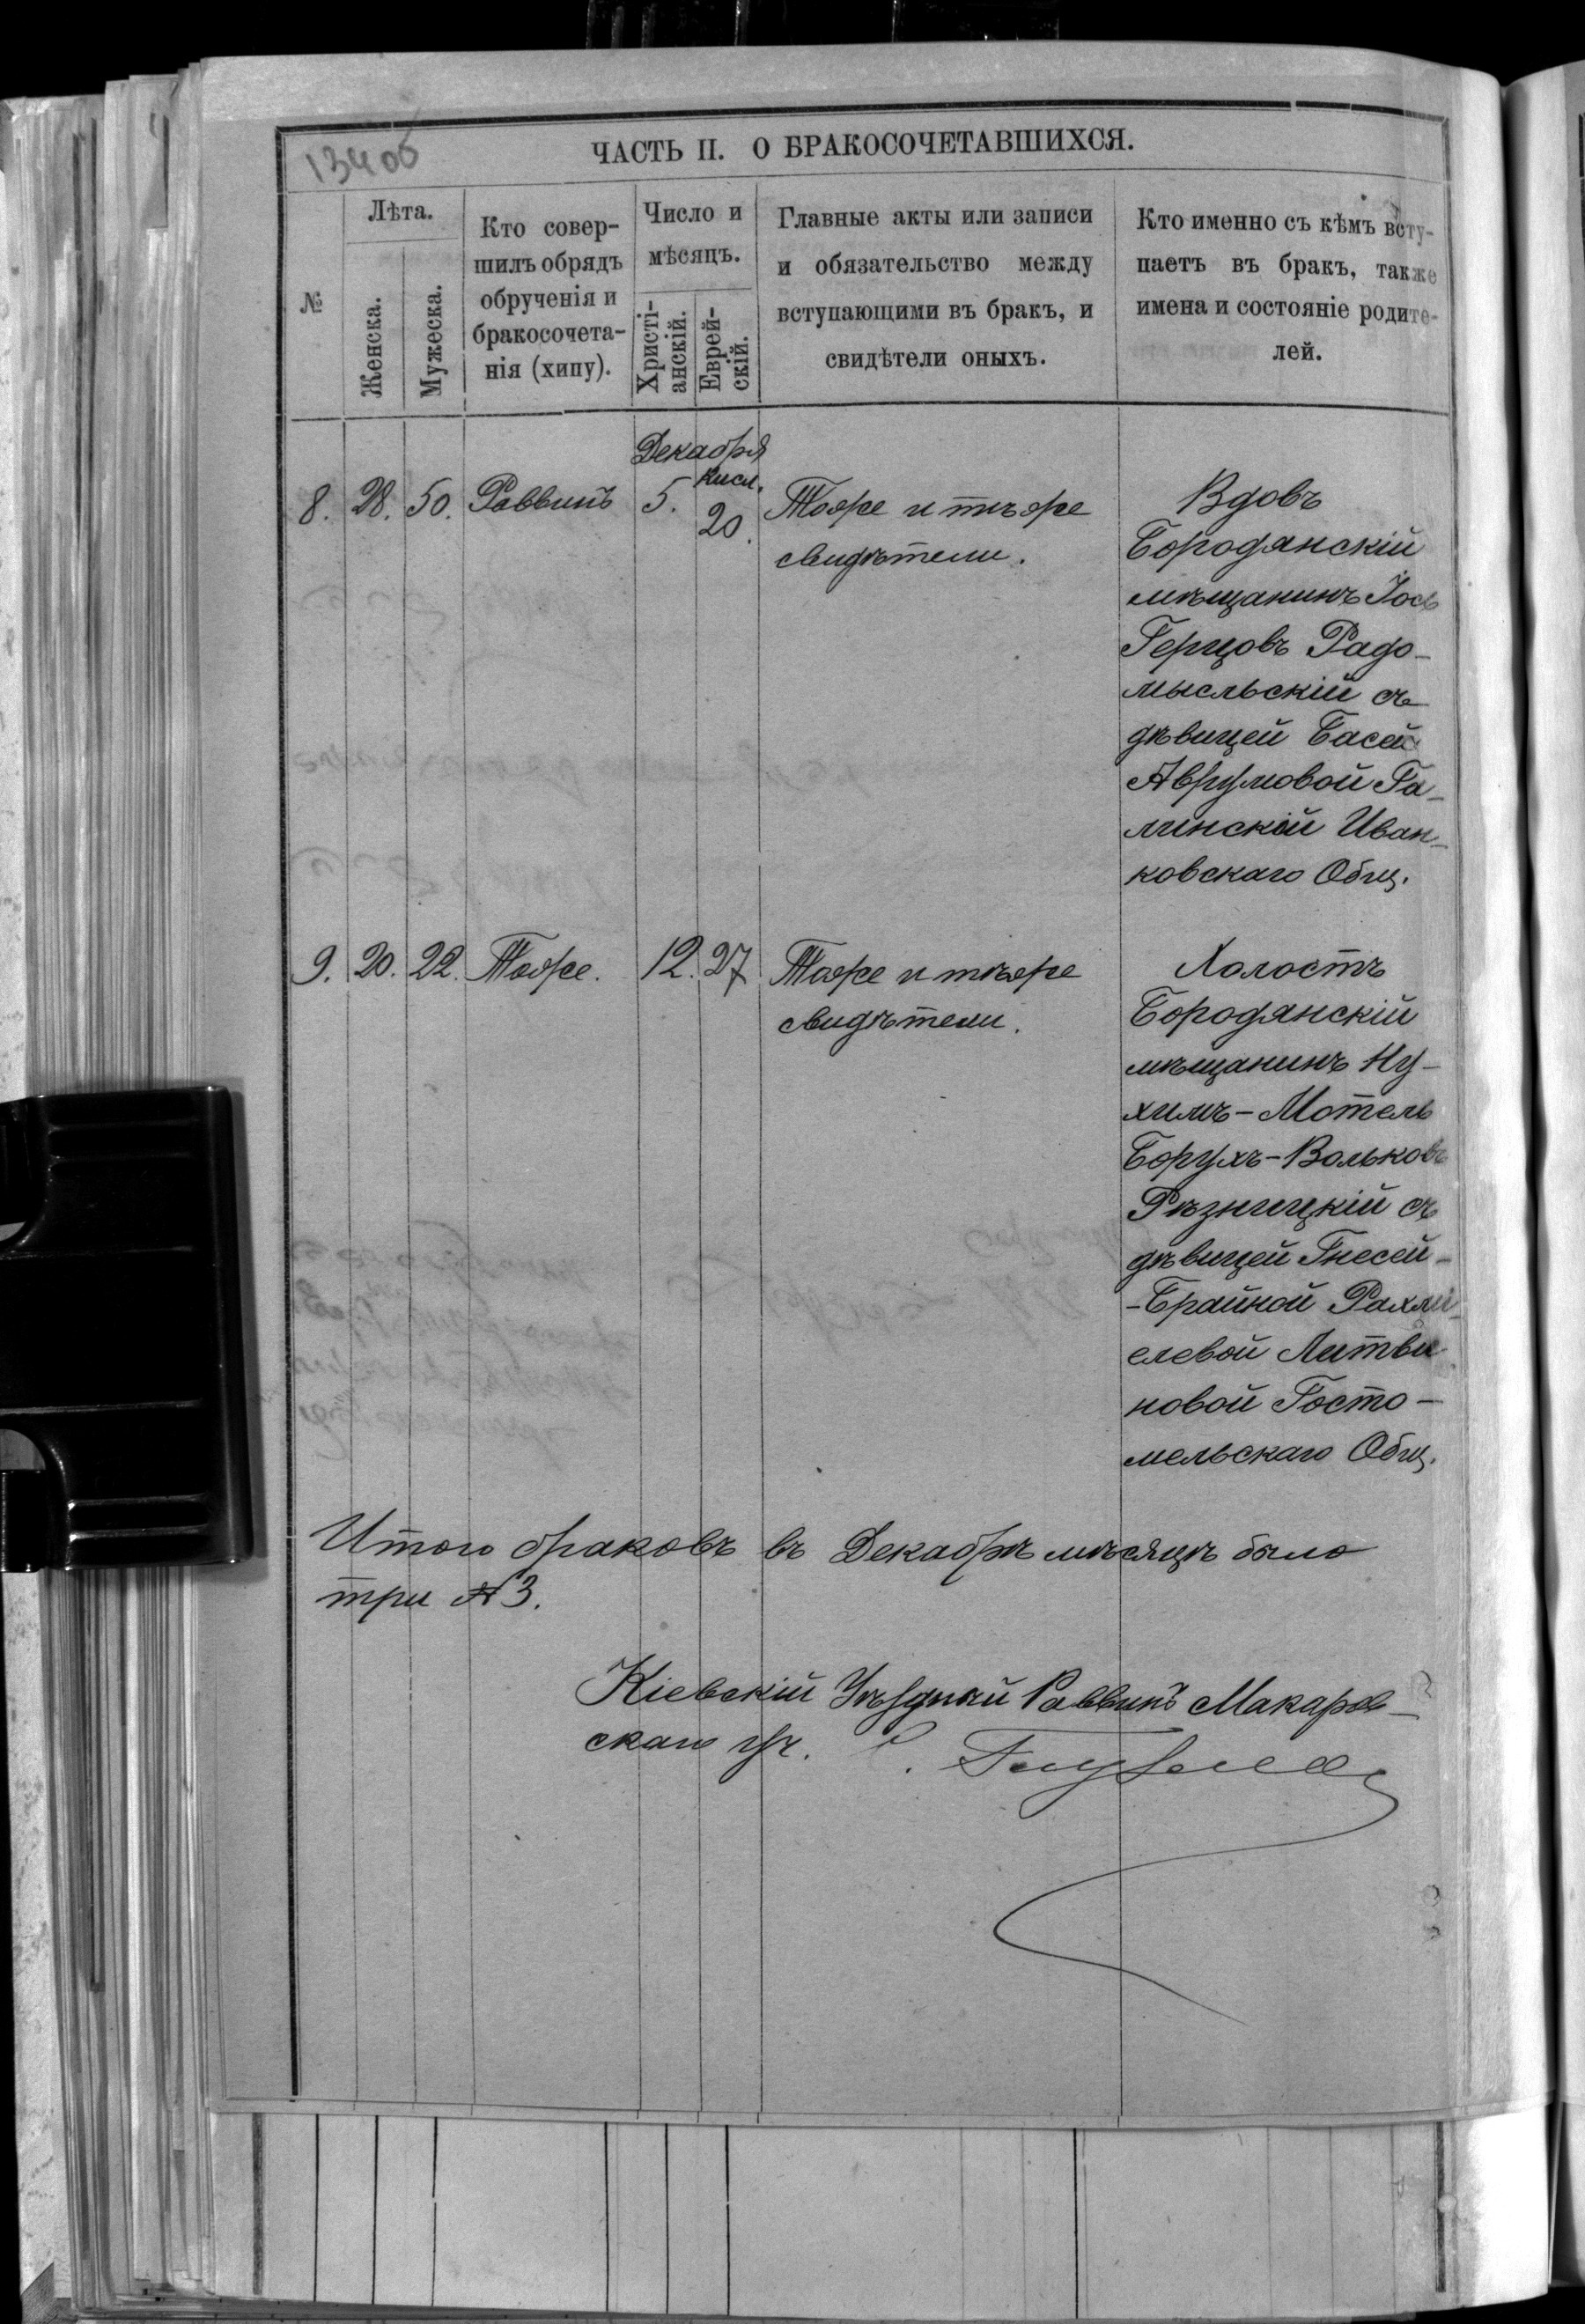 13406
ЧАСТЬ II. О БРАКОСОЧЕТАВШИХСЯ.
№
Лѣта.
Женска.
Мужеска.
Кто совер-
шилъ обрядъ
обрученія и
бракосочета-
нія (хипу).
Число и
мѣсяцъ.
Христі-
анскій.
Еврей-
скій.
Главные акты или записи
и обязательство между
вступающими въ бракъ, и
свидѣтели оныхъ.
Кто именно съ кѣмъ всту-
паетъ въ бракъ, также
имена и состояніе родите-
лей.
Декабря
Кисл.
8. 28. 50. Раввинъ 5. 20.
Тоже и тѣ же
свидѣтели.
Вдовъ
Бородянскій
мѣщанинъ Іось
Герцовъ Радо-
мысльскій съ
дѣвицей Басей
Аврумовой Га-
линскій Иван-
ковскаго Общ.
9. 20. 22. Тоже. 12. 27
Тоже и тѣже
свидѣтели.
Холостъ
Бородянскій
мѣщанинъ Ну-
химъ-Мотель
Борухъ-Вольковъ
Рѣзницкій съ
дѣвицей Гнесей-
-Брайной Рахми-
елевой Литви
новой Госто-
мельскаго Общ.
Итого браковъ въ Декабрѣ мѣсяцѣ было
три № 3.
Кіевскій Уѣздный Раввинъ Макаров-
скаго уч.